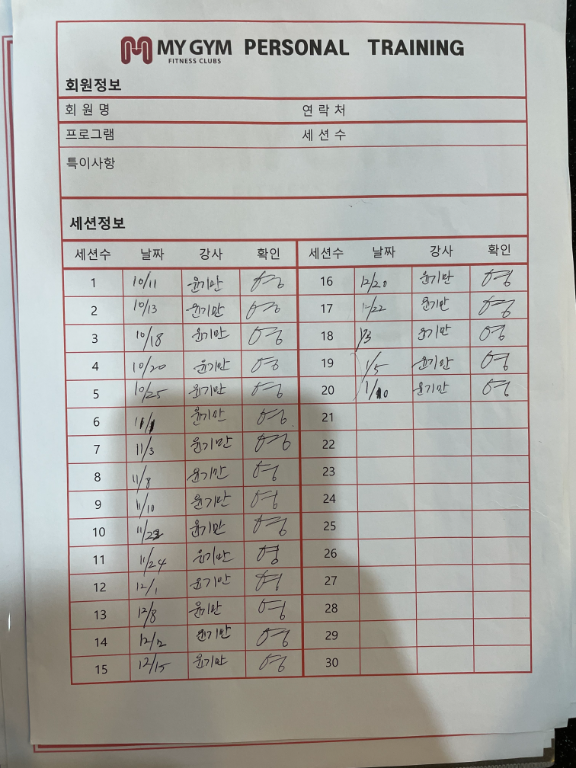 MY GYM PERSONAL TRAINING
FITNESS CLUBS
회원정보
회 원 명 연 락 처
프로그램 세 션 수
특이사항
세션정보
세션수 날짜 강사 확인 세션수 날짜 강사 확인
1 10/11 윤기만 영 16 12/20 윤기만 영
2 10/13 윤기만 영 17 12/22 윤기만 영
3 10/18 윤기만 영 18 1/3 윤기만 영
4 10/20 윤기만 영 19 1/5 윤기만 영
5 10/25 윤기만 영 20 1/10 윤기만 영
6 11/1 윤기만 영 21
7 11/3 윤기만 영 22
8 11/8 윤기만 영 23
9 11/10 윤기만 영 24
10 윤기만 영 25
11 11/24 윤기만 영 26
12 12/1 윤기만 영 27
13 12/8 윤기만 영 28
14 윤기만 영 29
15 12/15 윤기만 영 30